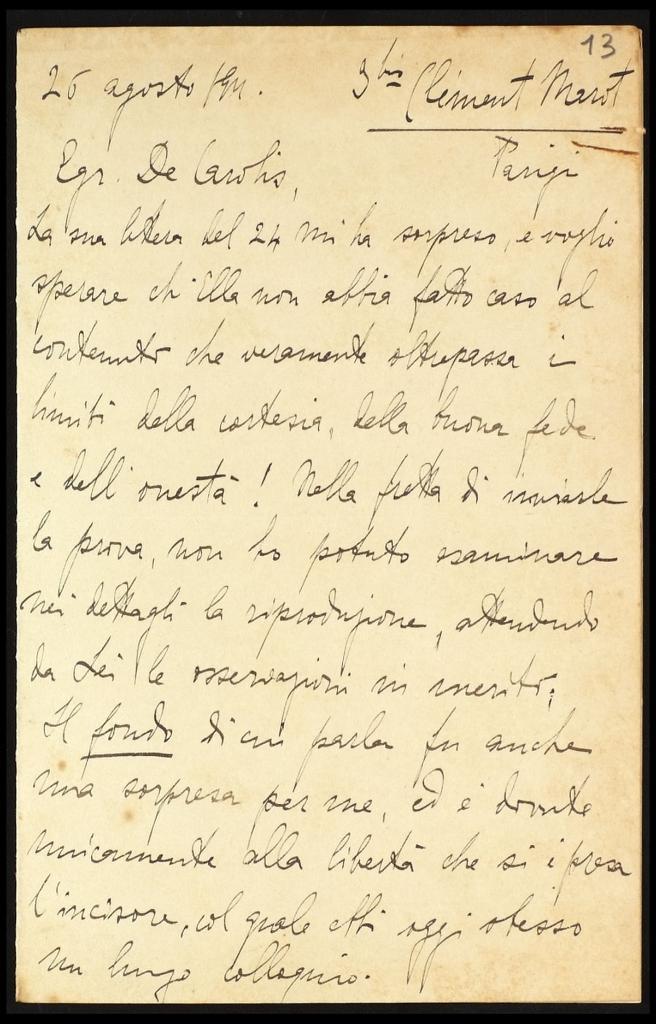 13
26 agosto 1911. 3bis Clément Marot
Parigi
Egr. De Carolis,
La sua lettera del 24 mi ha sorpreso, e voglio
sperare ch'Ella non abbia fatto caso al
contenuto che veramente oltrepassa i
limiti della cortesia, della buona fede
e dell'onestà! Nella fretta di inviarle
la prova, non ho potuto esaminare
nei dettagli la riproduzione, attendendo
da Lei le osservazioni in merito;
Il fondo di cui parla fu anche
una sorpresa per me, ed è dovuta
unicamente alla libertà che si è presa
l'incisore, col quale ebbi oggi stesso
un lungo colloquio.